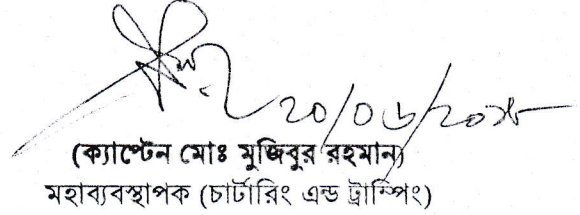 ২০/০৬/২০১৮
(ক্যাপ্টেন মোঃ মুজিবুর রহমান)
মহাব্যবস্থাপক (চার্টারিং এন্ড ট্রাম্পিং)